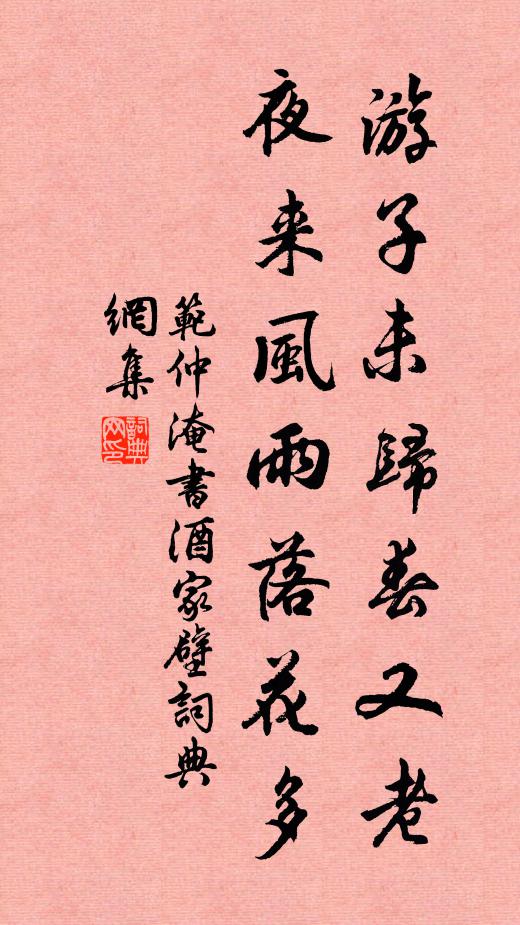 游子未歸春又老
夜来風雨落花多
範仲淹書酒家壁詞典
網集
詞典
网印